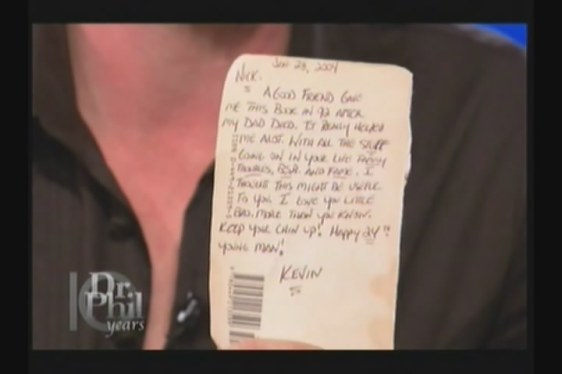 Jan 28, 2004
Nick.
A Good Friend Gave
me this Book in '92 after
my Dad Died. It Really Helped
me alot. With all the stuff
Going on in your life Family
Troubles, BSB, and Fame. I
thought this might be useful
to you. I love you little
Bro, more than you know.
Keep your chin up! Happy 24th
young man!
Kevin
Dr.
Phil
years